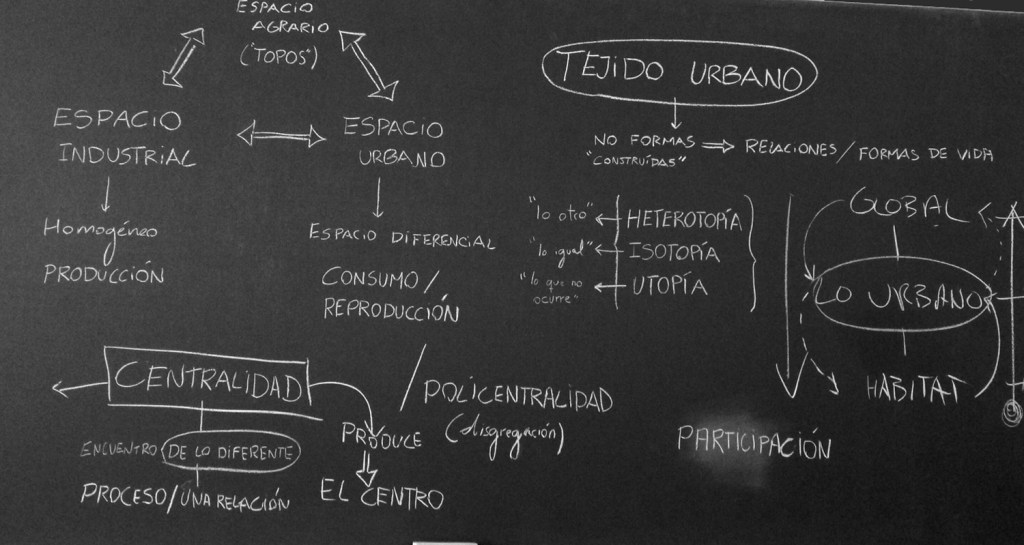 ESPACIO
AGRARIO
("TOPOS")
ESPACIO
INDUSTRIAL
ESPACIO
URBANO
Homogéneo
PRODUCCIÓN
ESPACIO DIFERENCIAL
CONSUMO /
REPRODUCCIÓN
CENTRALIDAD
ENCUENTRO DE LO DIFERENTE
PROCESO/UNA RELACIÓN
PRODUCE
EL CENTRO
/ POLICENTRALIDAD
(disgregación)
TEJIDO URBANO
NO FORMAS
"CONSTRUÍDAS"
RELACIONES / FORMAS DE VIDA
"lo otro" HETEROTOPÍA
"lo igual" ISOTOPÍA
"lo que no
ocurre" UTOPÍA
GLOBAL
LO URBANO
HABITAT
PARTICIPACIÓN